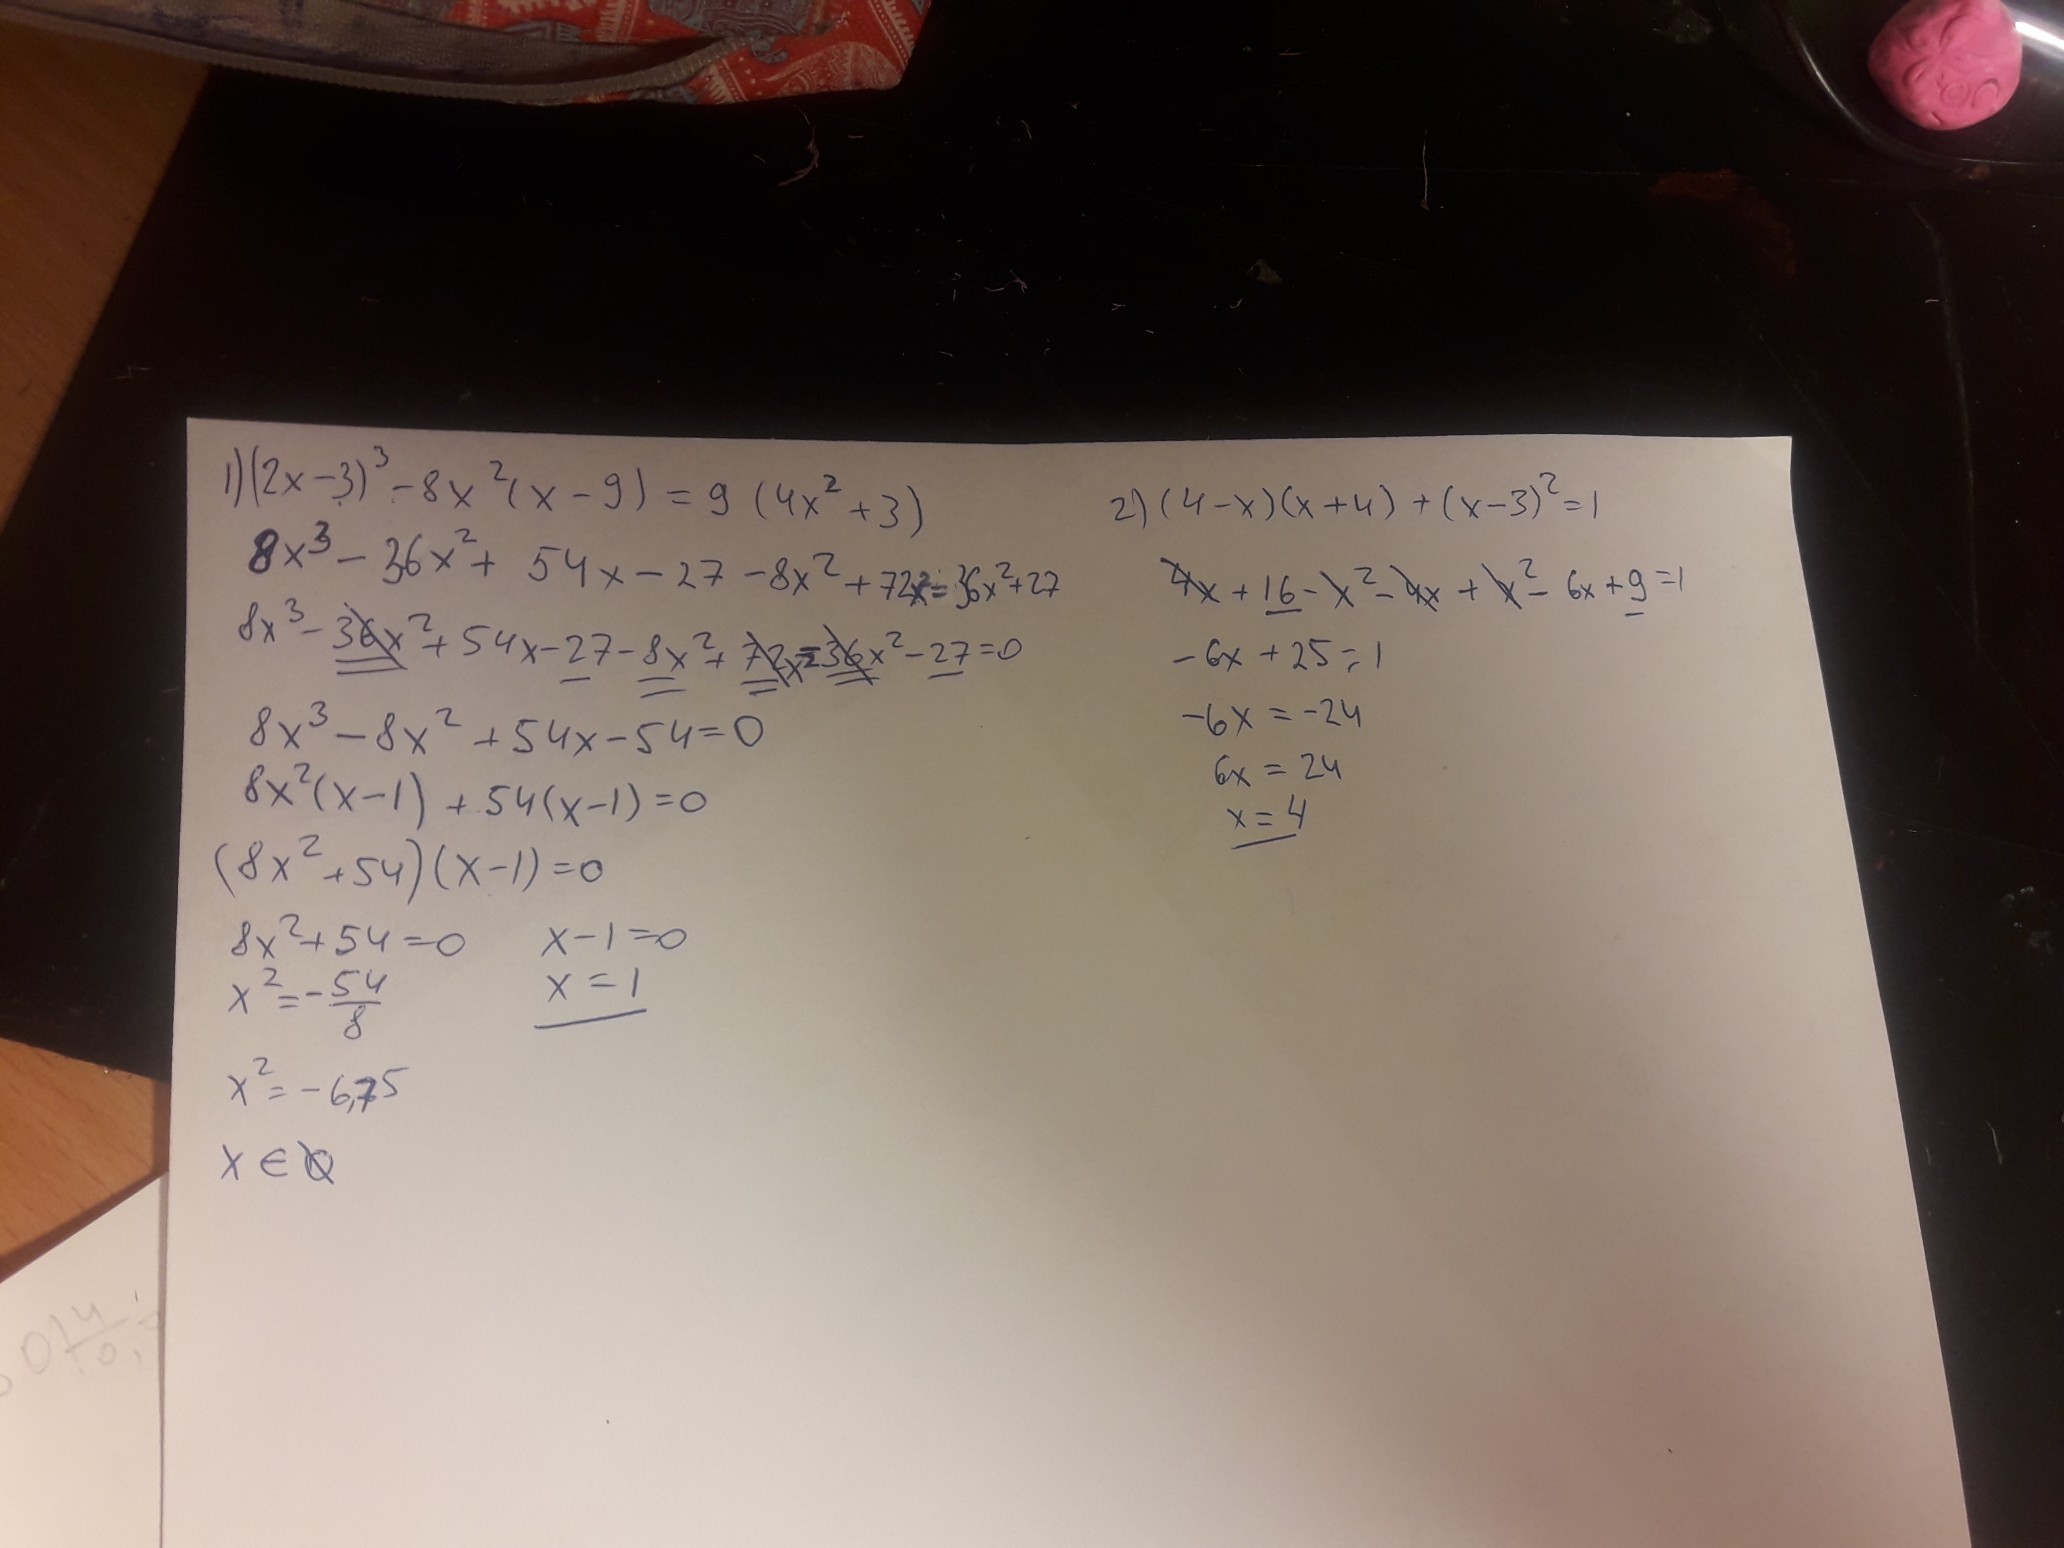 1) (2x-3)³ - 8x²(x-9) = 9(4x²+3)
8x³ - 36x² + 54x - 27 - 8x² + 72x² = 36x² + 27
8x³ - 36x² + 54x - 27 - 8x² + 72x² - 36x² - 27 = 0
8x³ - 8x² + 54x - 54 = 0
8x²(x-1) + 54(x-1) = 0
(8x² + 54)(x-1) = 0
8x² + 54 = 0
x² = -54/8
x² = -6,75
x ∈
x - 1 = 0
x = 1
2) (4-x)(x+4) + (x-3)² = 1
4x + 16 - x² - 4x + x² - 6x + 9 = 1
-6x + 25 = 1
-6x = -24
6x = 24
x = 4